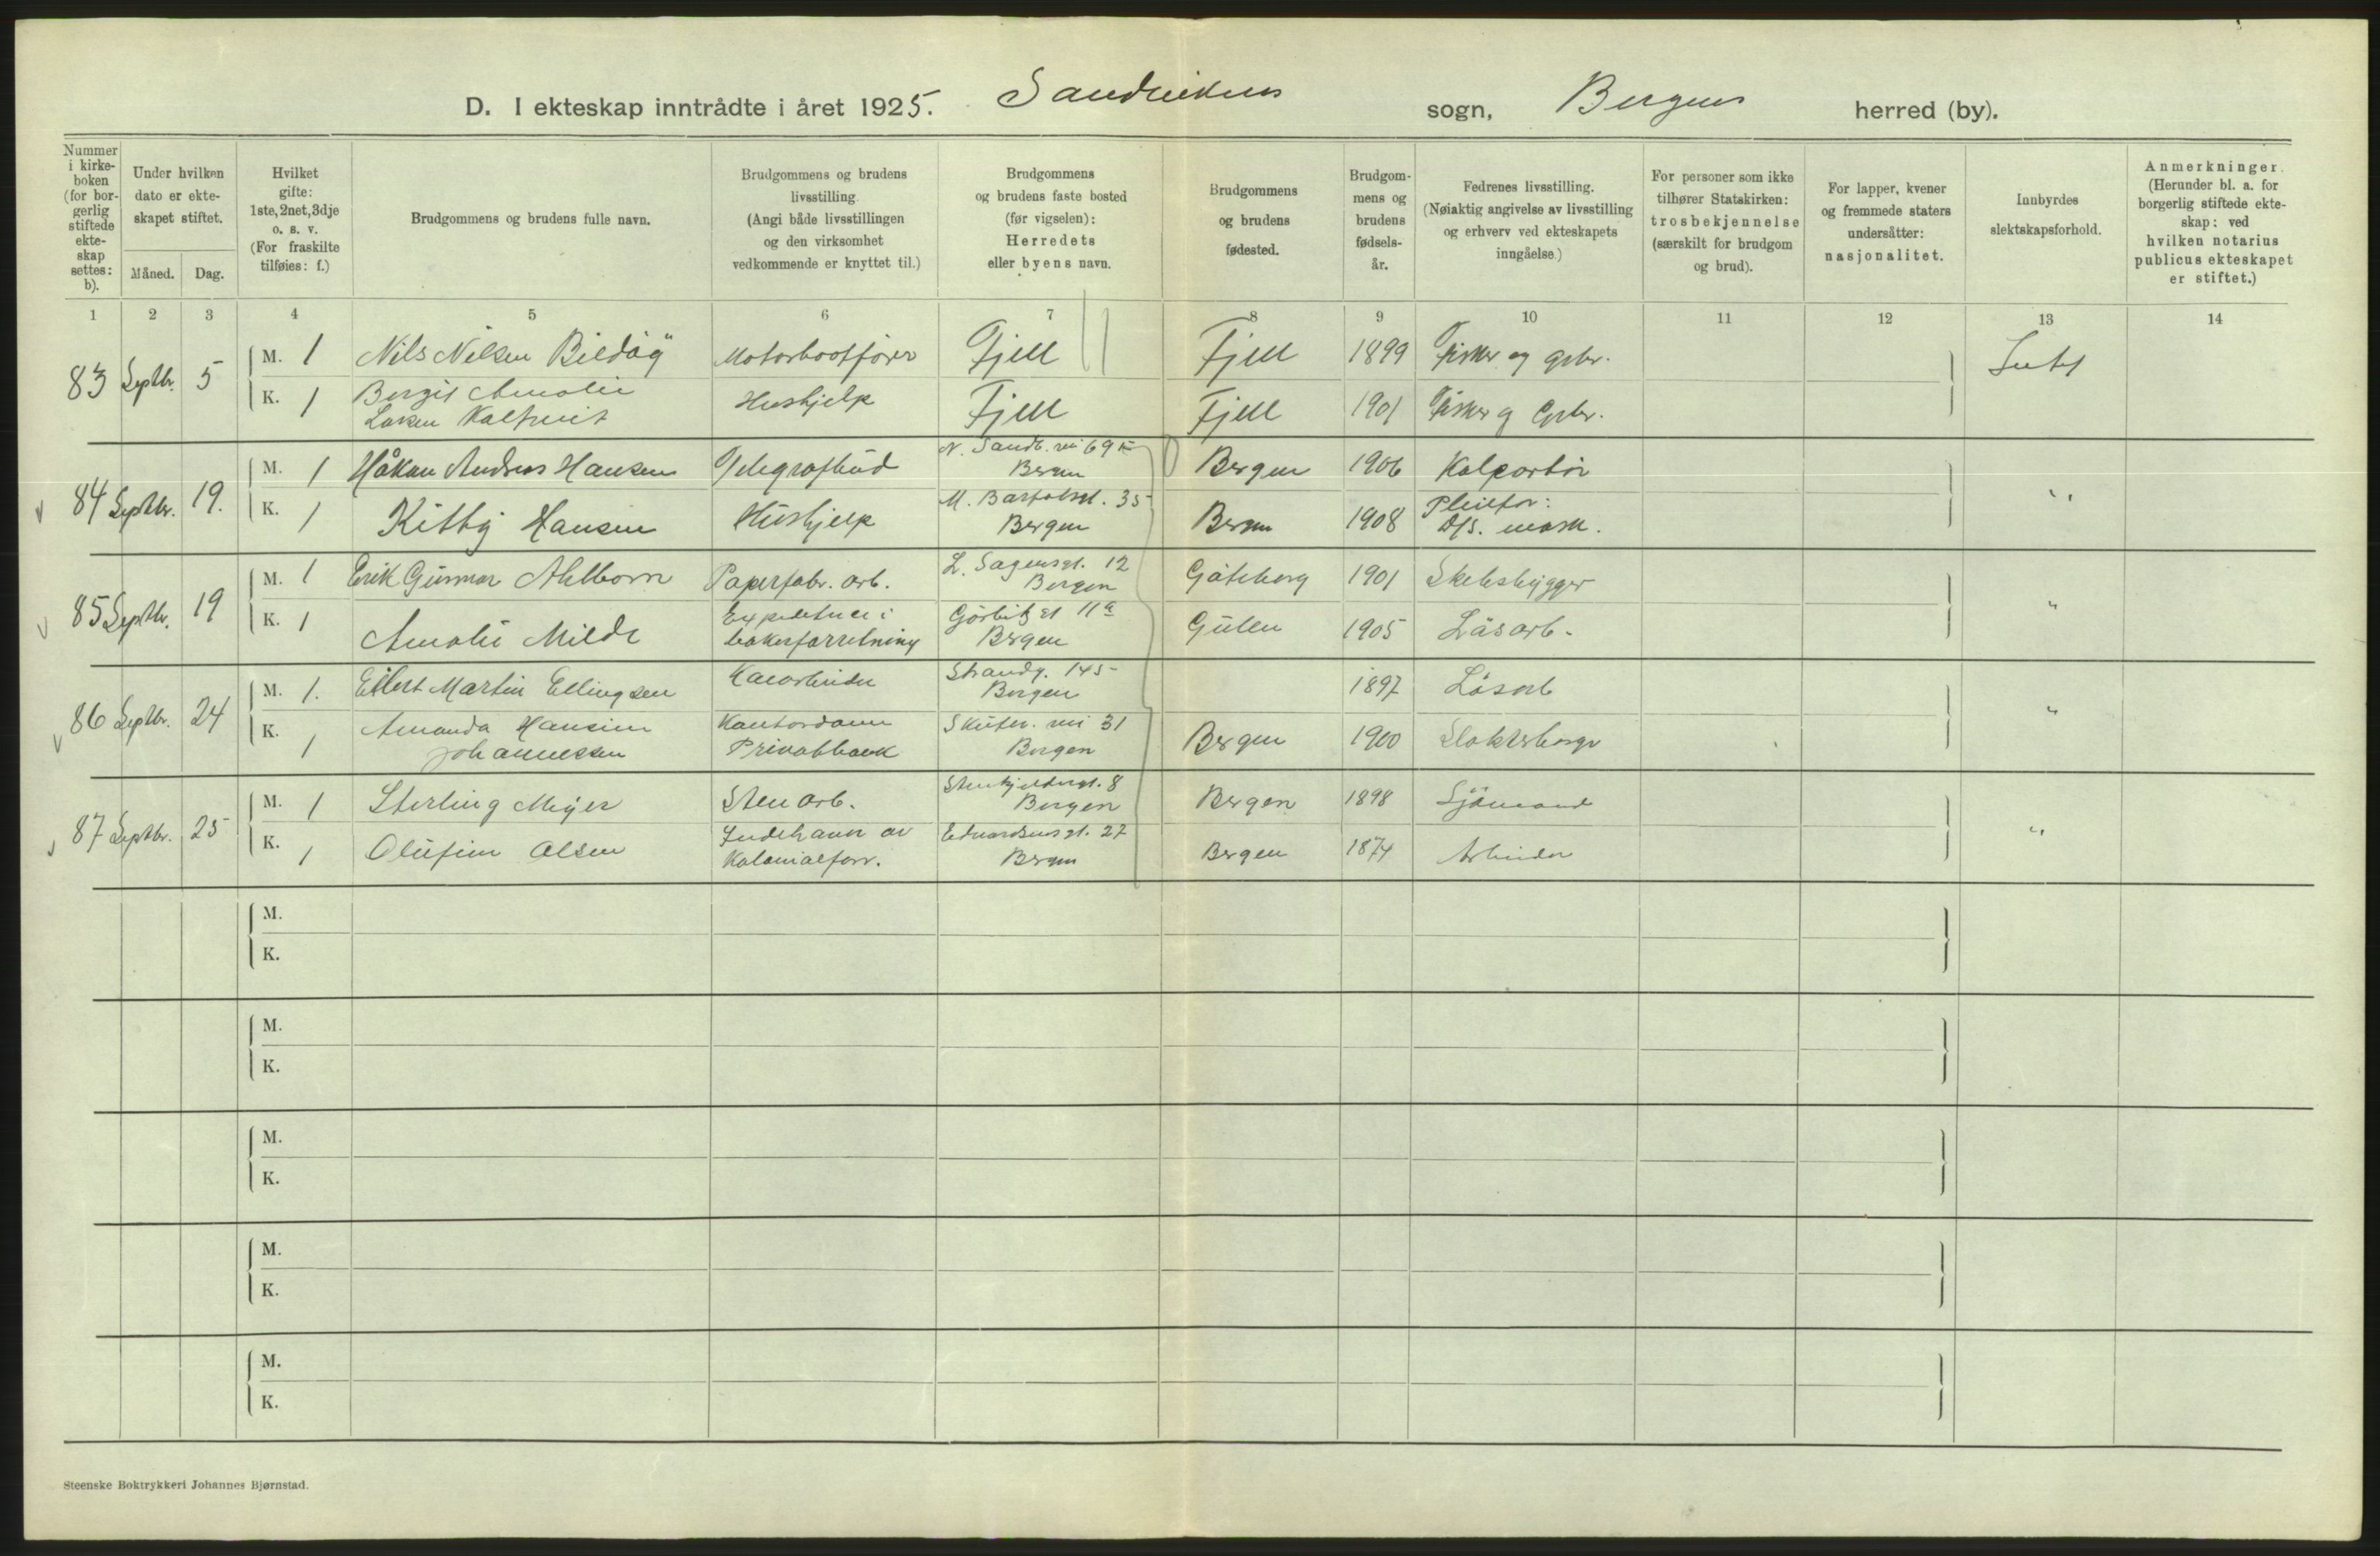 D. I ekteskap inntrådte i året 1925. Sandvikens sogn, Bergens herred (by).
Nummer i kirkeboken (for borgerlig stiftede ekteskap settes: b).
Under hvilken dato er ekteskapet stiftet.
Måned. Dag.
Hvilket gifte: 1ste, 2net, 3dje o. s. v. (For fraskilte tilføies: f.)
Brudgommens og brudens fulle navn.
Brudgommens og brudens livsstilling (Angi både livsstillingen og den virksomhet vedkommende er knyttet til.)
Brudgommens og brudens faste bosted (før vigselen): Herredets eller byens navn.
Brudgommens og brudens fødested.
Brudgommens og brudens fødselsår.
Fedrenes livsstilling. (Nøiaktig angivelse av livsstilling og erhverv ved ekteskapets inngåelse.)
For personer som ikke tilhører Statskirken: trosbekjennelse (særskilt for brudgom og brud).
For lapper, kvener og fremmede staters undersåtter: nasjonalitet.
Innbyrdes slektskapsforhold.
Anmerkninger. (Herunder bl. a. for borgerlig stiftede ekteskap: ved hvilken notarius publicus ekteskapet er stiftet.)
1 2 3 4 5 6 7 8 9 10 11 12 13 14
83 Septbr. 5 M. 1 Nils Nilsen Bildøy Motorbootfører Fjell Fjell 1899 Fisker og gbr. Intet
K. 1 Borgit Amalie Hushjelp Fjell Fjell 1901 Fisker og Gbr.
Laksen Kaltveit
84 Septbr. 19. M. 1 Håkan Andreas Hansen Telegrafbud N. Sandv. vei 69
Bergen Bergen 1906 Kolportør "
K. 1 Kitty Hansen Hushjelp M. Bartolsst. 35
Bergen Bergen 1908 Pleiefor:
D/S. mask.
85 Septbr. 19 M. 1 Erik Gunnar Ahlborn Papirfabr. arb. L. Sagensgt. 12
Bergen Gøteborg 1901 Skibsbygger "
K. 1 Amalie Milde Expeditrice i Görbitzgt 11a
bakerforretning Bergen Gulen 1905 Løsarb.
86 Septbr. 24 M. 1. Eilert Martin Ellingsen Kaiarbeider Strandg. 145
Bergen 1897 Løsarb "
K. 1 Amanda Hansine Kontordame Skutev. vei 31
Johannessen Privatbank Bergen Bergen 1900 Slakterborger
87 Septbr. 25 M. 1 Sterling Meyer Sten arb. Stenkjeldergt. 8
Bergen Bergen 1898 Sjømand "
K. 1 Olufine Olsen Indehaver av Edvardsensgt. 27
Kolonialforr. Bergen Bergen 1874 Arbeider
M.
K.
M.
K.
M.
K.
M.
K.
M.
K.
Steenske Boktrykkeri Johannes Bjørnstad.